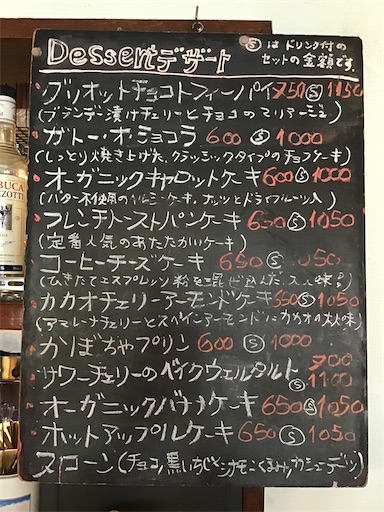 Dessert デザート
Ⓢはドリンク付の
セットの金額です。
グリオットチョコトフィーパイ 750 Ⓢ 1150
(ブランデー漬けチェリーとチョコのマリアージュ)
ガトー・オ・ショコラ 600 Ⓢ 1000
(しっとり焼き上げた、クラッシックタイプのチョコケーキ)
オーガニックキャロットケーキ 600 Ⓢ 1000
(バター不使用のヘルシーケーキ、ナッツとドライフルーツ入)
フレンチトーストパンケーキ 650 Ⓢ 1050
(定番人気のあたたかいケーキ)
コーヒーチーズケーキ 650 Ⓢ 1050
(ひきたてエスプレッソ粉を混ぜ込んだ、大人味
カカオチェリーアーモンドケーキ 650 Ⓢ 1050
(アマレーナチェリーとスペインアーモンドにカカオの大人味)
かぼちゃプリン 600 Ⓢ 1000
サワーチェリーのベイクウェルタルト 700
Ⓢ 1100
オーガニックバナナケーキ 650 Ⓢ 1050
ホットアップルケーキ 650 Ⓢ 1050
スコーン(チョコ、黒いちじくとシナモン、くるみ、カシューデーツ)